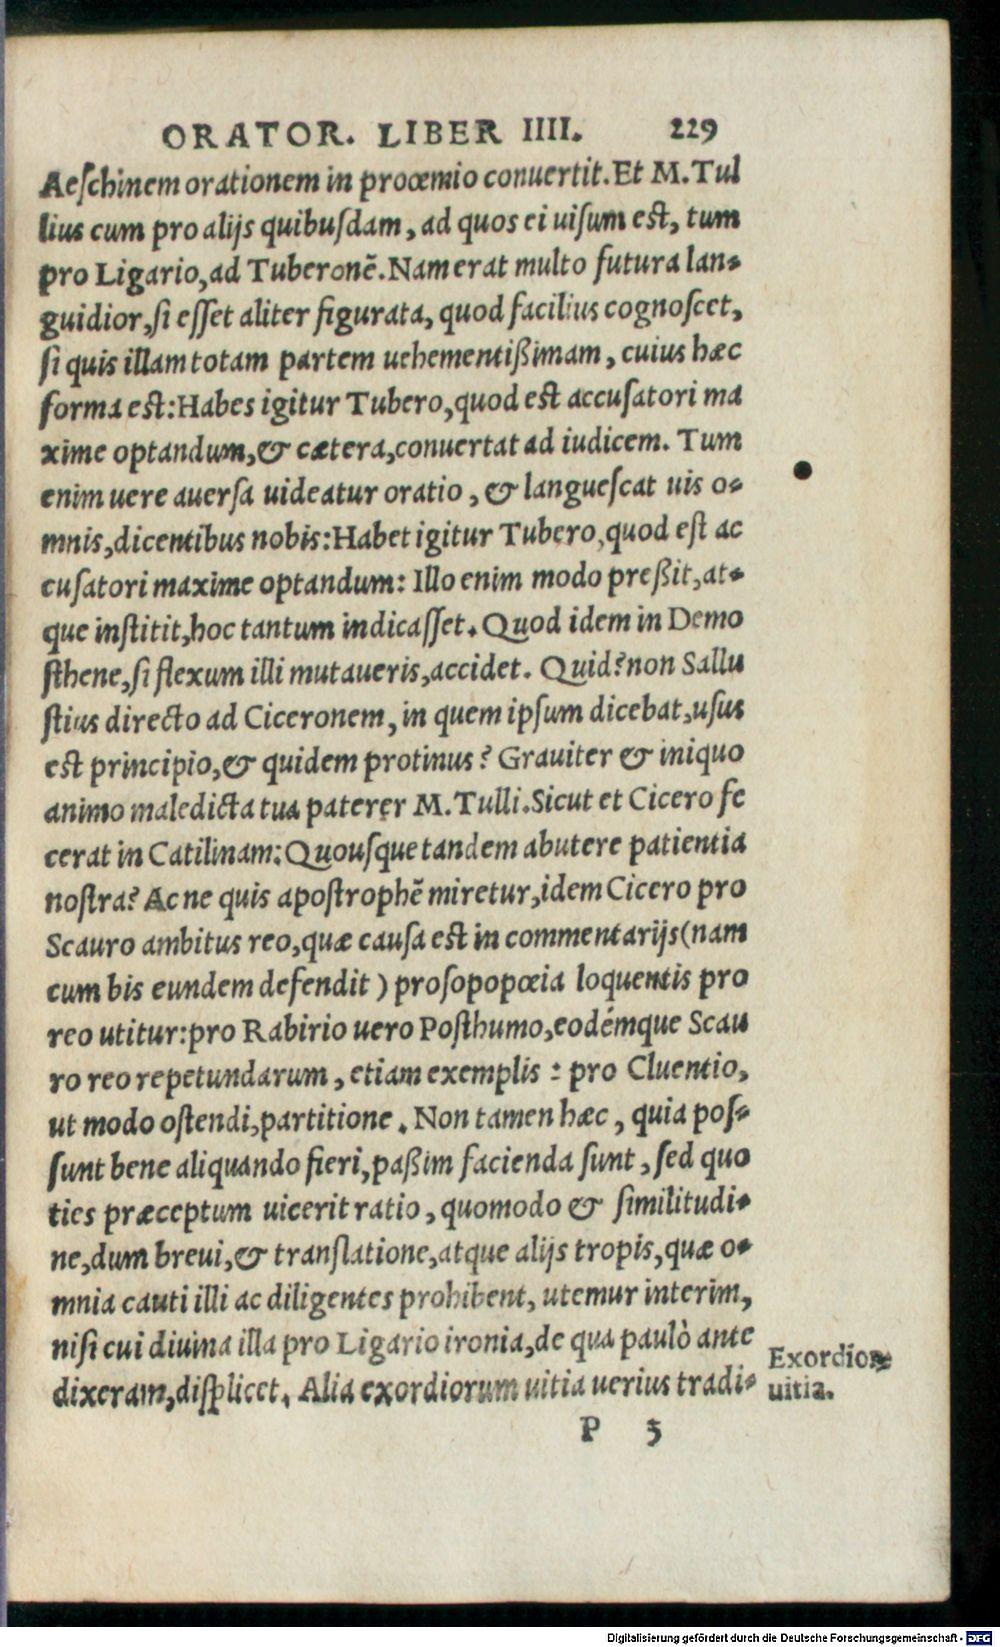 ORATOR. LIBER IIII. 229
Aeschinem orationem in prooemio conuertit. Et M. Tul
lius cum pro alijs quibusdam, ad quos ei uisum est, tum
pro Ligario, ad Tuberonē. Nam erat multo futura lan-
guidior, si esset aliter figurata, quod facilius cognoscet,
si quis illam totam partem uehementißimam, cuius hæc
forma est: Habes igitur Tubero, quod est accusatori ma
xime optandum, & cætera, conuertat ad iudicem. Tum
enim uere auersa uideatur oratio, & languescat uis o-
mnis, dicentibus nobis: Habet igitur Tubero, quod est ac
cusatori maxime optandum: Illo enim modo preßit, at-
que institit, hoc tantum indicasset. Quod idem in Demo
sthene, si flexum illi mutaueris, accidet. Quid? non Sallu
stius directo ad Ciceronem, in quem ipsum dicebat, usus
est principio, & quidem protinus? Grauiter & iniquo
animo maledicta tua paterer M. Tulli. Sicut et Cicero fe
cerat in Catilinam: Quousque tandem abutere patientia
nostra? Ac ne quis apostrophē miretur, idem Cicero pro
Scauro ambitus reo, quæ causa est in commentarijs (nam
cum bis eundem defendit) prosopopœia loquentis pro
reo utitur: pro Rabirio uero Posthumo, eodémque Scau
ro reo repetundarum, etiam exemplis: pro Cluentio,
ut modo ostendi, partitione. Non tamen hæc, quia pos-
sunt bene aliquando fieri, paßim facienda sunt, sed quo
ties præceptum uicerit ratio, quomodo & similitudi-
ne, dum breui, & translatione, atque alijs tropis, quæ o-
mnia cauti illi ac diligentes prohibent, utemur interim,
nisi cui diuina illa pro Ligario ironia, de qua paulò ante
dixeram, displicet. Alia exordiorum uitia uerius tradi-
Exordioꝝ
uitia.
P 3
Digitalisierung gefördert durch die Deutsche Forschungsgemeinschaft - DFG